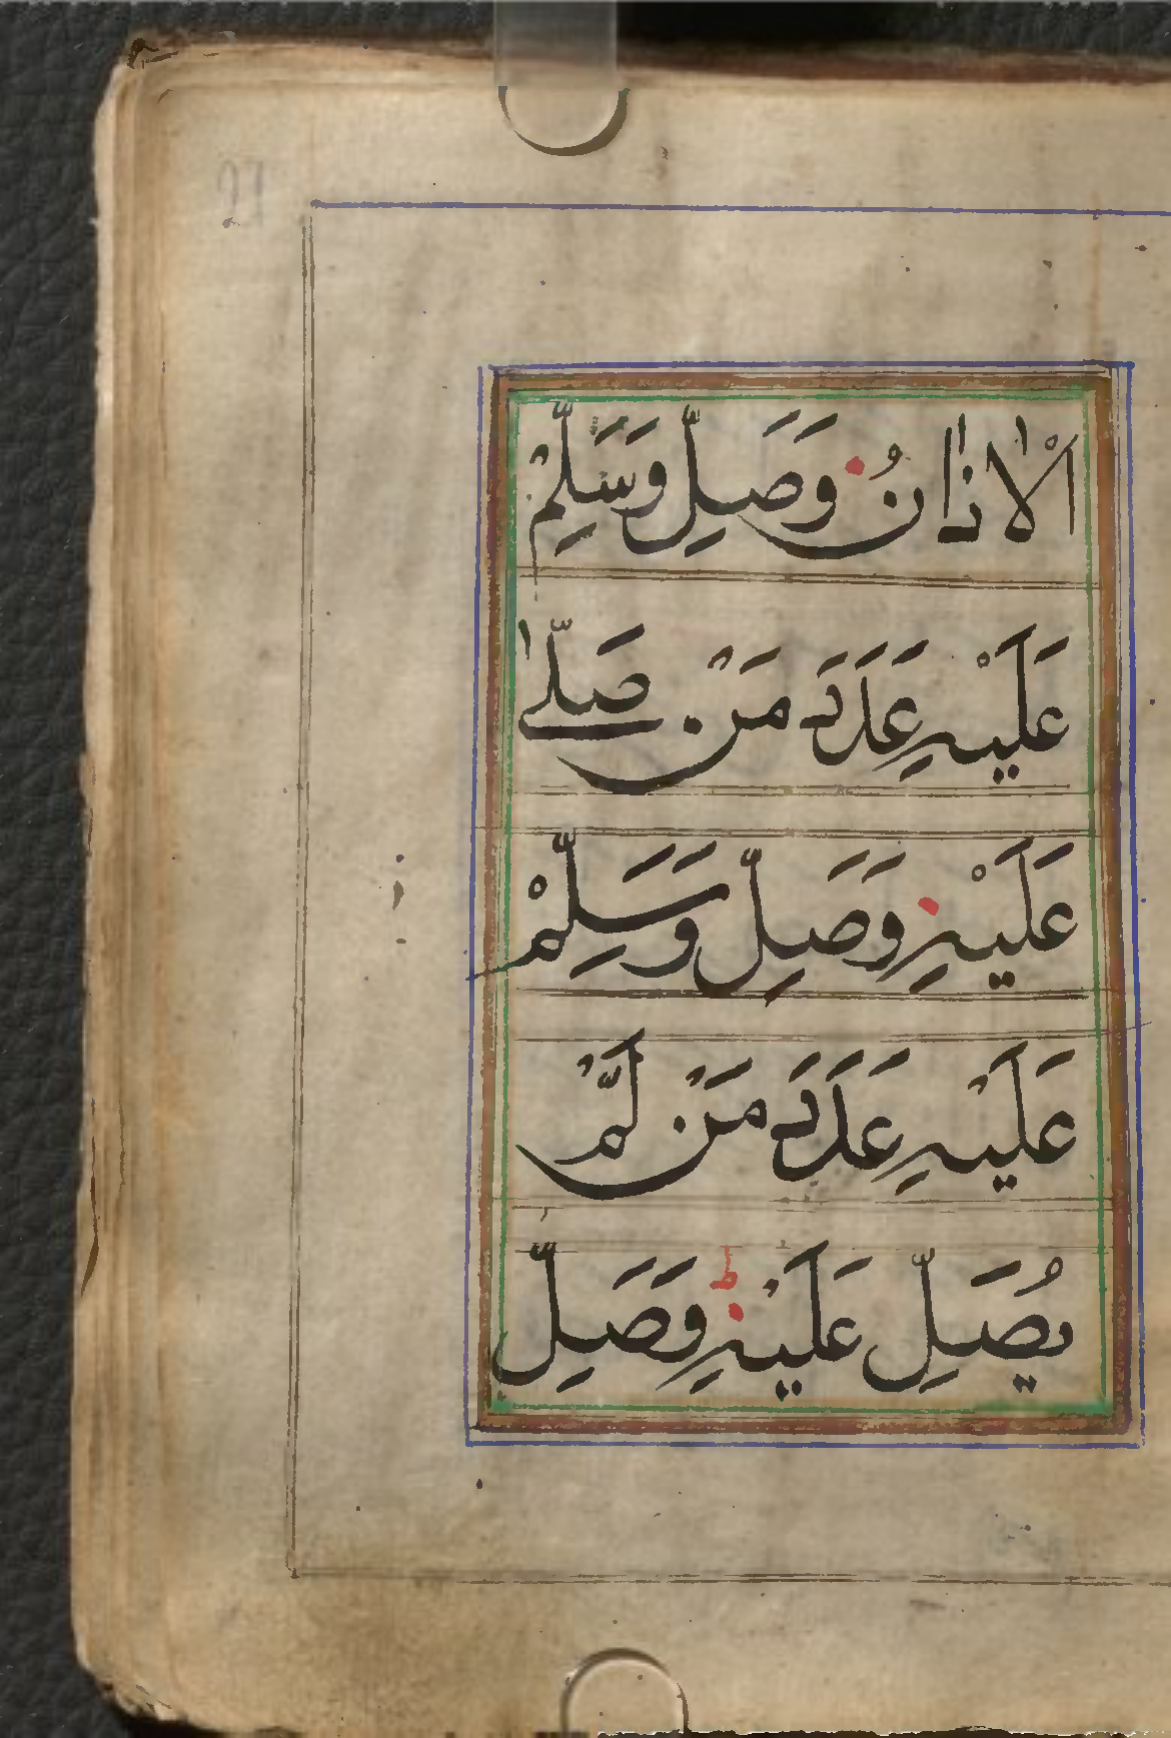 27
الْاٰذَانُ وَصَلِّ وَسَلِّمْ
عَلَيْهِ عَدَدَ مَنْ صَلّٰى
عَلَيْهِ وَصَلِّ وَسَلِّمْ
عَلَيْهِ عَدَدَ مَنْ لَّمْ
يُصَلِّ عَلَيْهِ ط وَصَلِّ